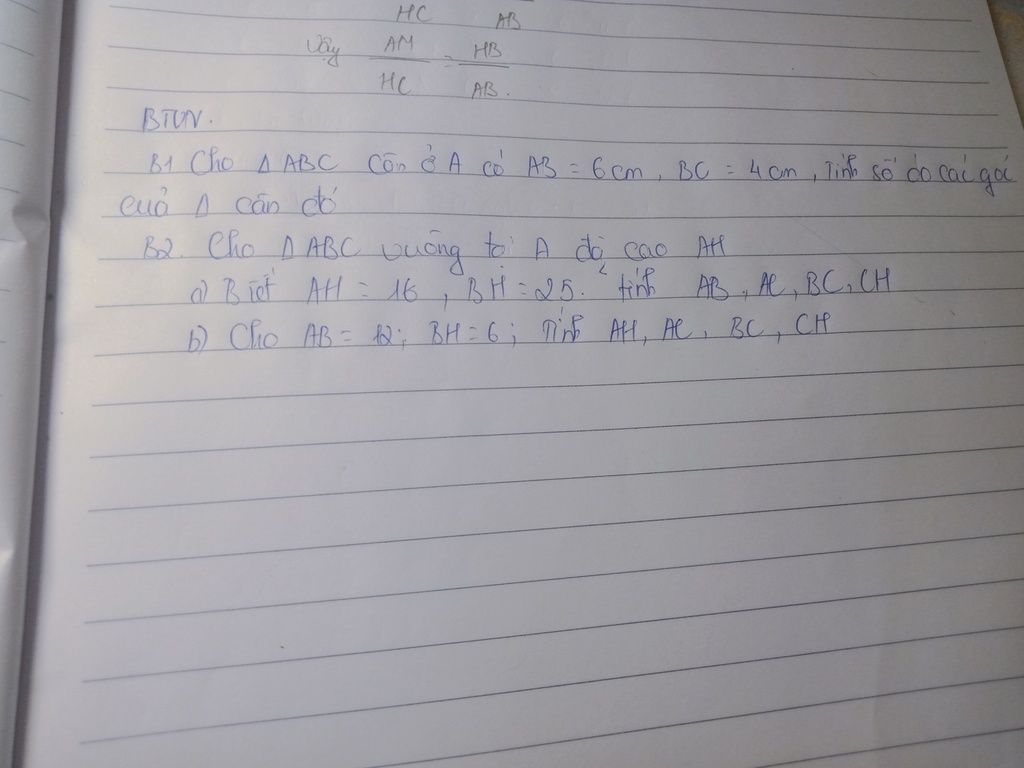 HC AB
Vậy AM = HB
HC AB.
BTVN.
B1 Cho Δ ABC cân ở A có AB = 6cm, BC = 4cm, Tính số đo các góc
của Δ cân đó
B2. Cho Δ ABC vuông tại A độ cao AH
a) Biết AH = 16, BH = 25. tính AB, AC, BC, CH
b) Cho AB = 12; BH = 6; Tính AH, AC, BC, CH